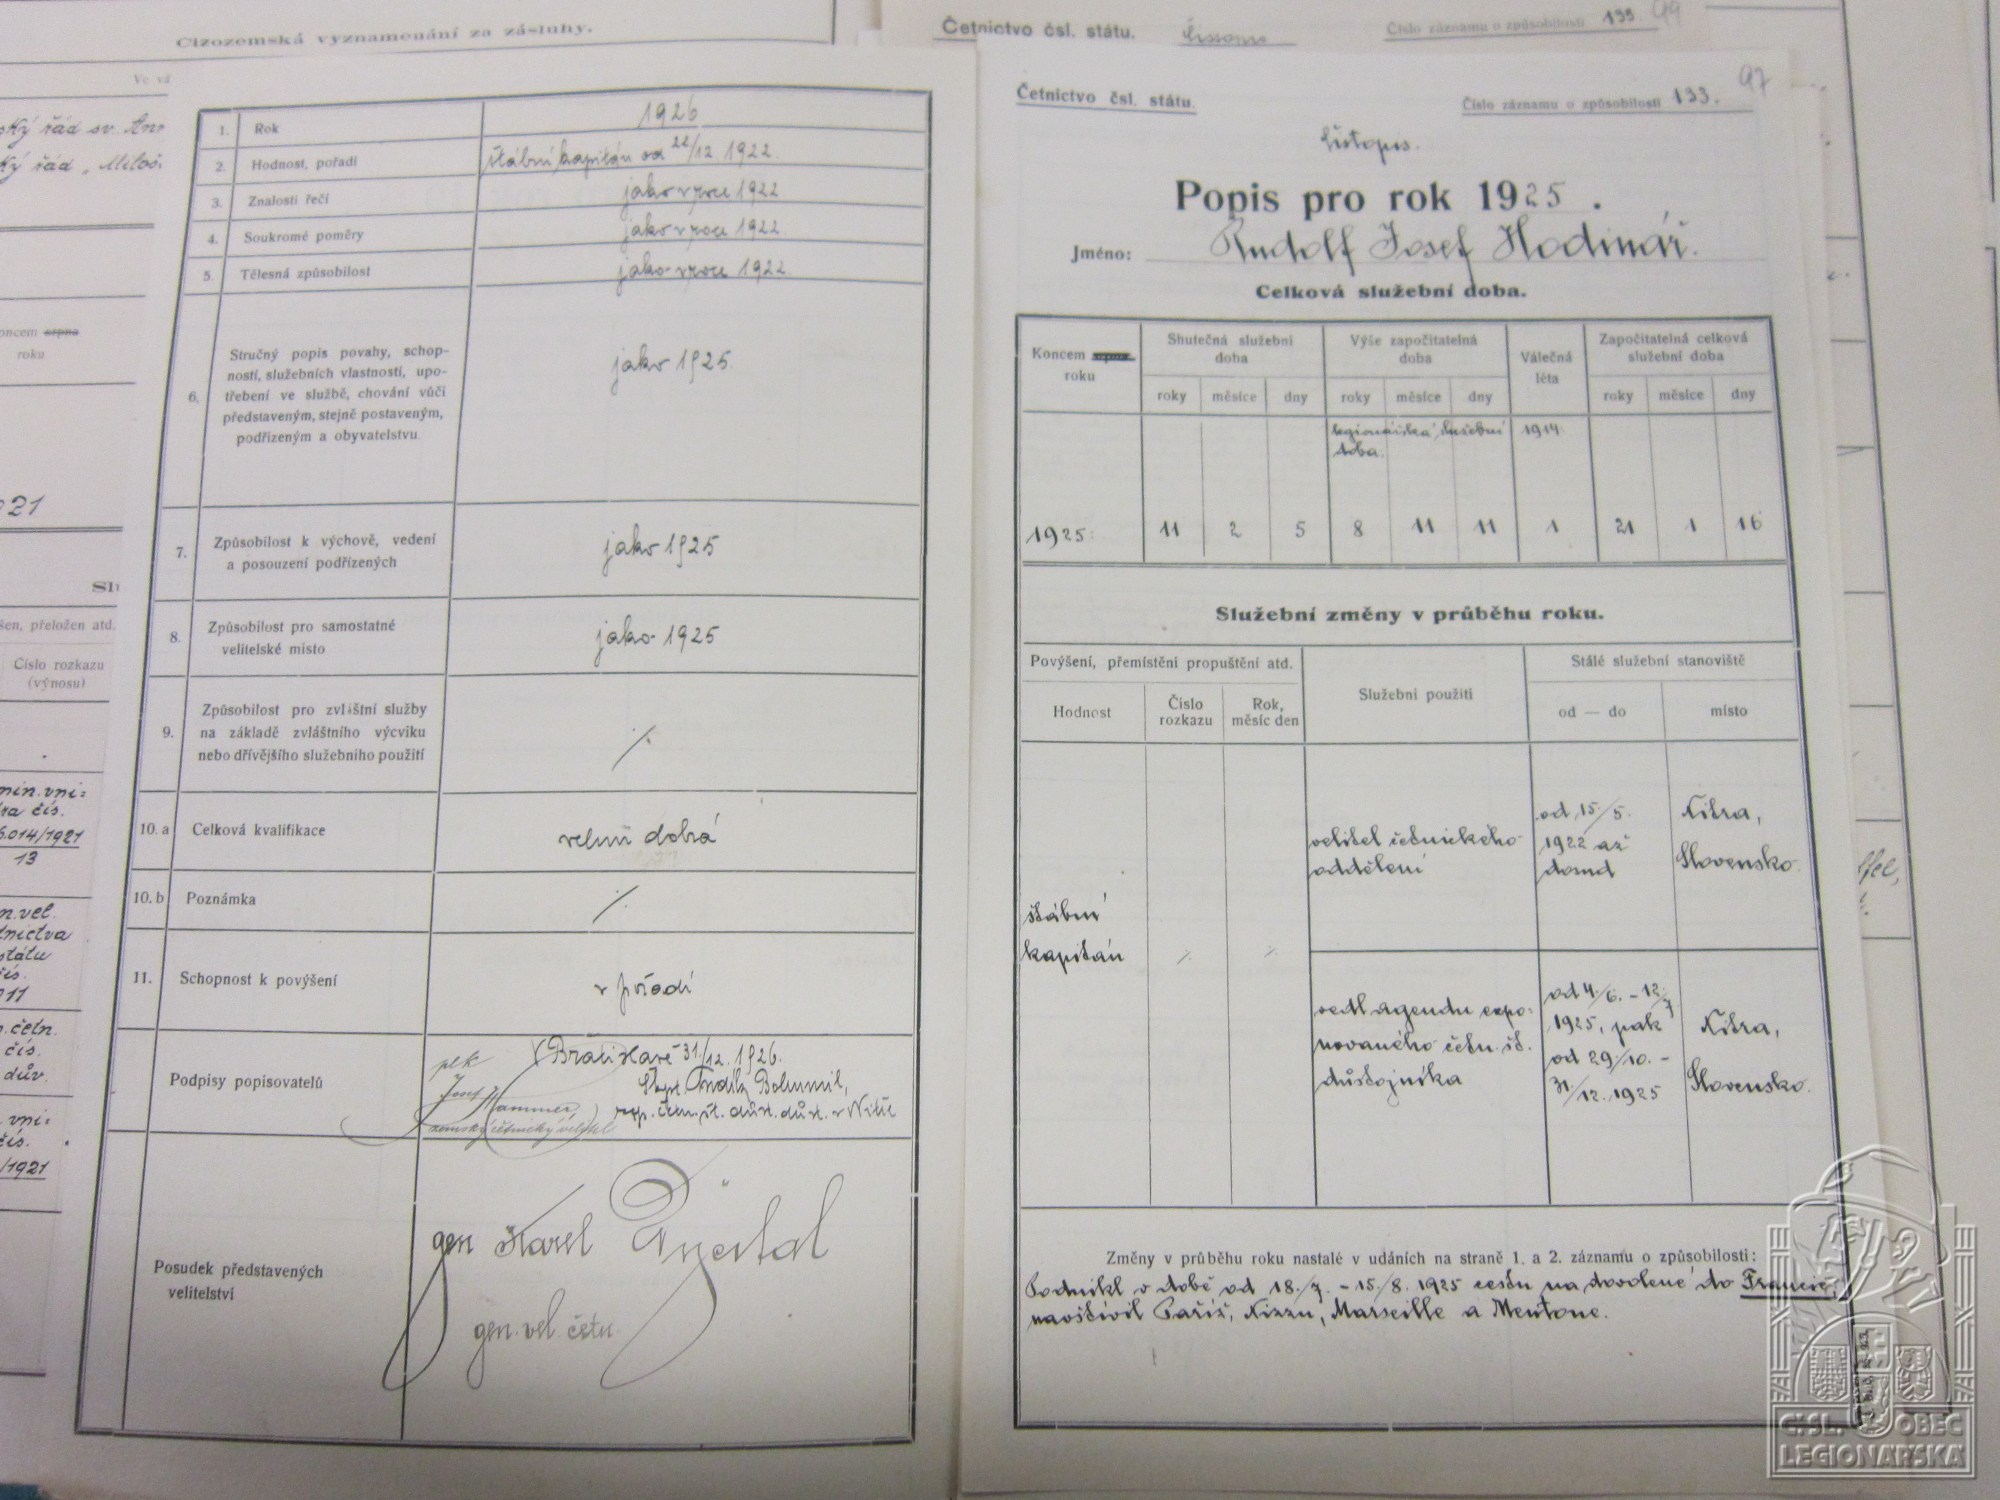 Cizozemská vyznamenání za zásluhy.
ský řád sv. Ann
ký řád „Miloš
koncem srpna
roku
921
Slu
šen, přeložen atd.
Číslo rozkazu
(výnosu)
min. vni=
tra čís.
6.014/1921
13
n. vel.
tnictva
státu
čís.
911
. četn.
čís.
dův.
. vni=
čís.
/1921
1. Rok 1926
2. Hodnost, pořadí štábní kapitán od 22/12. 1922.
3. Znalosti řečí jako v roce 1922
4. Soukromé poměry jako v roce 1922.
5. Tělesná způsobilost jako v roce 1922.
6. Stručný popis povahy, schop-
ností, služebních vlastností, upo-
třebení ve službě, chování vůči
představeným, stejně postaveným,
podřízeným a obyvatelstvu.
jako 1925.
7. Způsobilost k výchově, vedení
a posouzení podřízených
jako 1925
8. Způsobilost pro samostatné
velitelské místo
jako 1925
9. Způsobilost pro zvláštní služby
na základě zvláštního výcviku
nebo dřívějšího služebního použití
⁒
10. a Celková kvalifikace velmi dobrá
10. b Poznámka ⁒
11. Schopnost k povýšení v pořadí
Podpisy popisovatelů
V Bratislavě 31/12. 1926.
plk
Josef Hammer,
zemský četnický velitel
Bohumil,
exp. četn. št. důst. důst. v Nitře
Posudek představených
velitelství
gen Karel
gen. vel. četn.
Četnictvo čsl. státu.
Číslo záznamu o způsobilosti 133. 99
Četnictvo čsl. státu.
Číslo záznamu o způsobilosti 133. 97
Listopis.
Popis pro rok 1925.
Jméno: Rudolf Josef Hodinář.
Celková služební doba.
Koncem srpna
roku
Skutečná služební
doba
Výše započitatelná
doba
Válečná
léta
Započitatelná celková
služební doba
roky měsíce dny roky měsíce dny roky měsíce dny
legionářská služební
doba.
1914
1925: 11 2 5 8 11 11 1 21 1 16
Služební změny v průběhu roku.
Povýšení, přemístění propuštění atd.
Služební použití
Stálé služební stanoviště
Hodnost
Číslo
rozkazu
Rok,
měsíc den
od — do
místo
štábní
kapitán
⁒
⁒
velitel četnického
oddělení
od 15/5.
1922 až
dosud
Nitra,
Slovensko.
vedl agendu expo-
novaného četn. št.
důstojníka
od 4./6. - 12./7
1925, pak
od 29./10. -
31./12. 1925
Nitra,
Slovensko.
Změny v průběhu roku nastalé v udáních na straně 1. a 2. záznamu o způsobilosti:
Podnikl v době od 18./7. - 15./8. 1925 cestu na dovolené do Francie,
navštívil Paříž, Nizzu, Marseille a Mentone.
ČSL. OBEC
LEGIONÁŘSKÁ